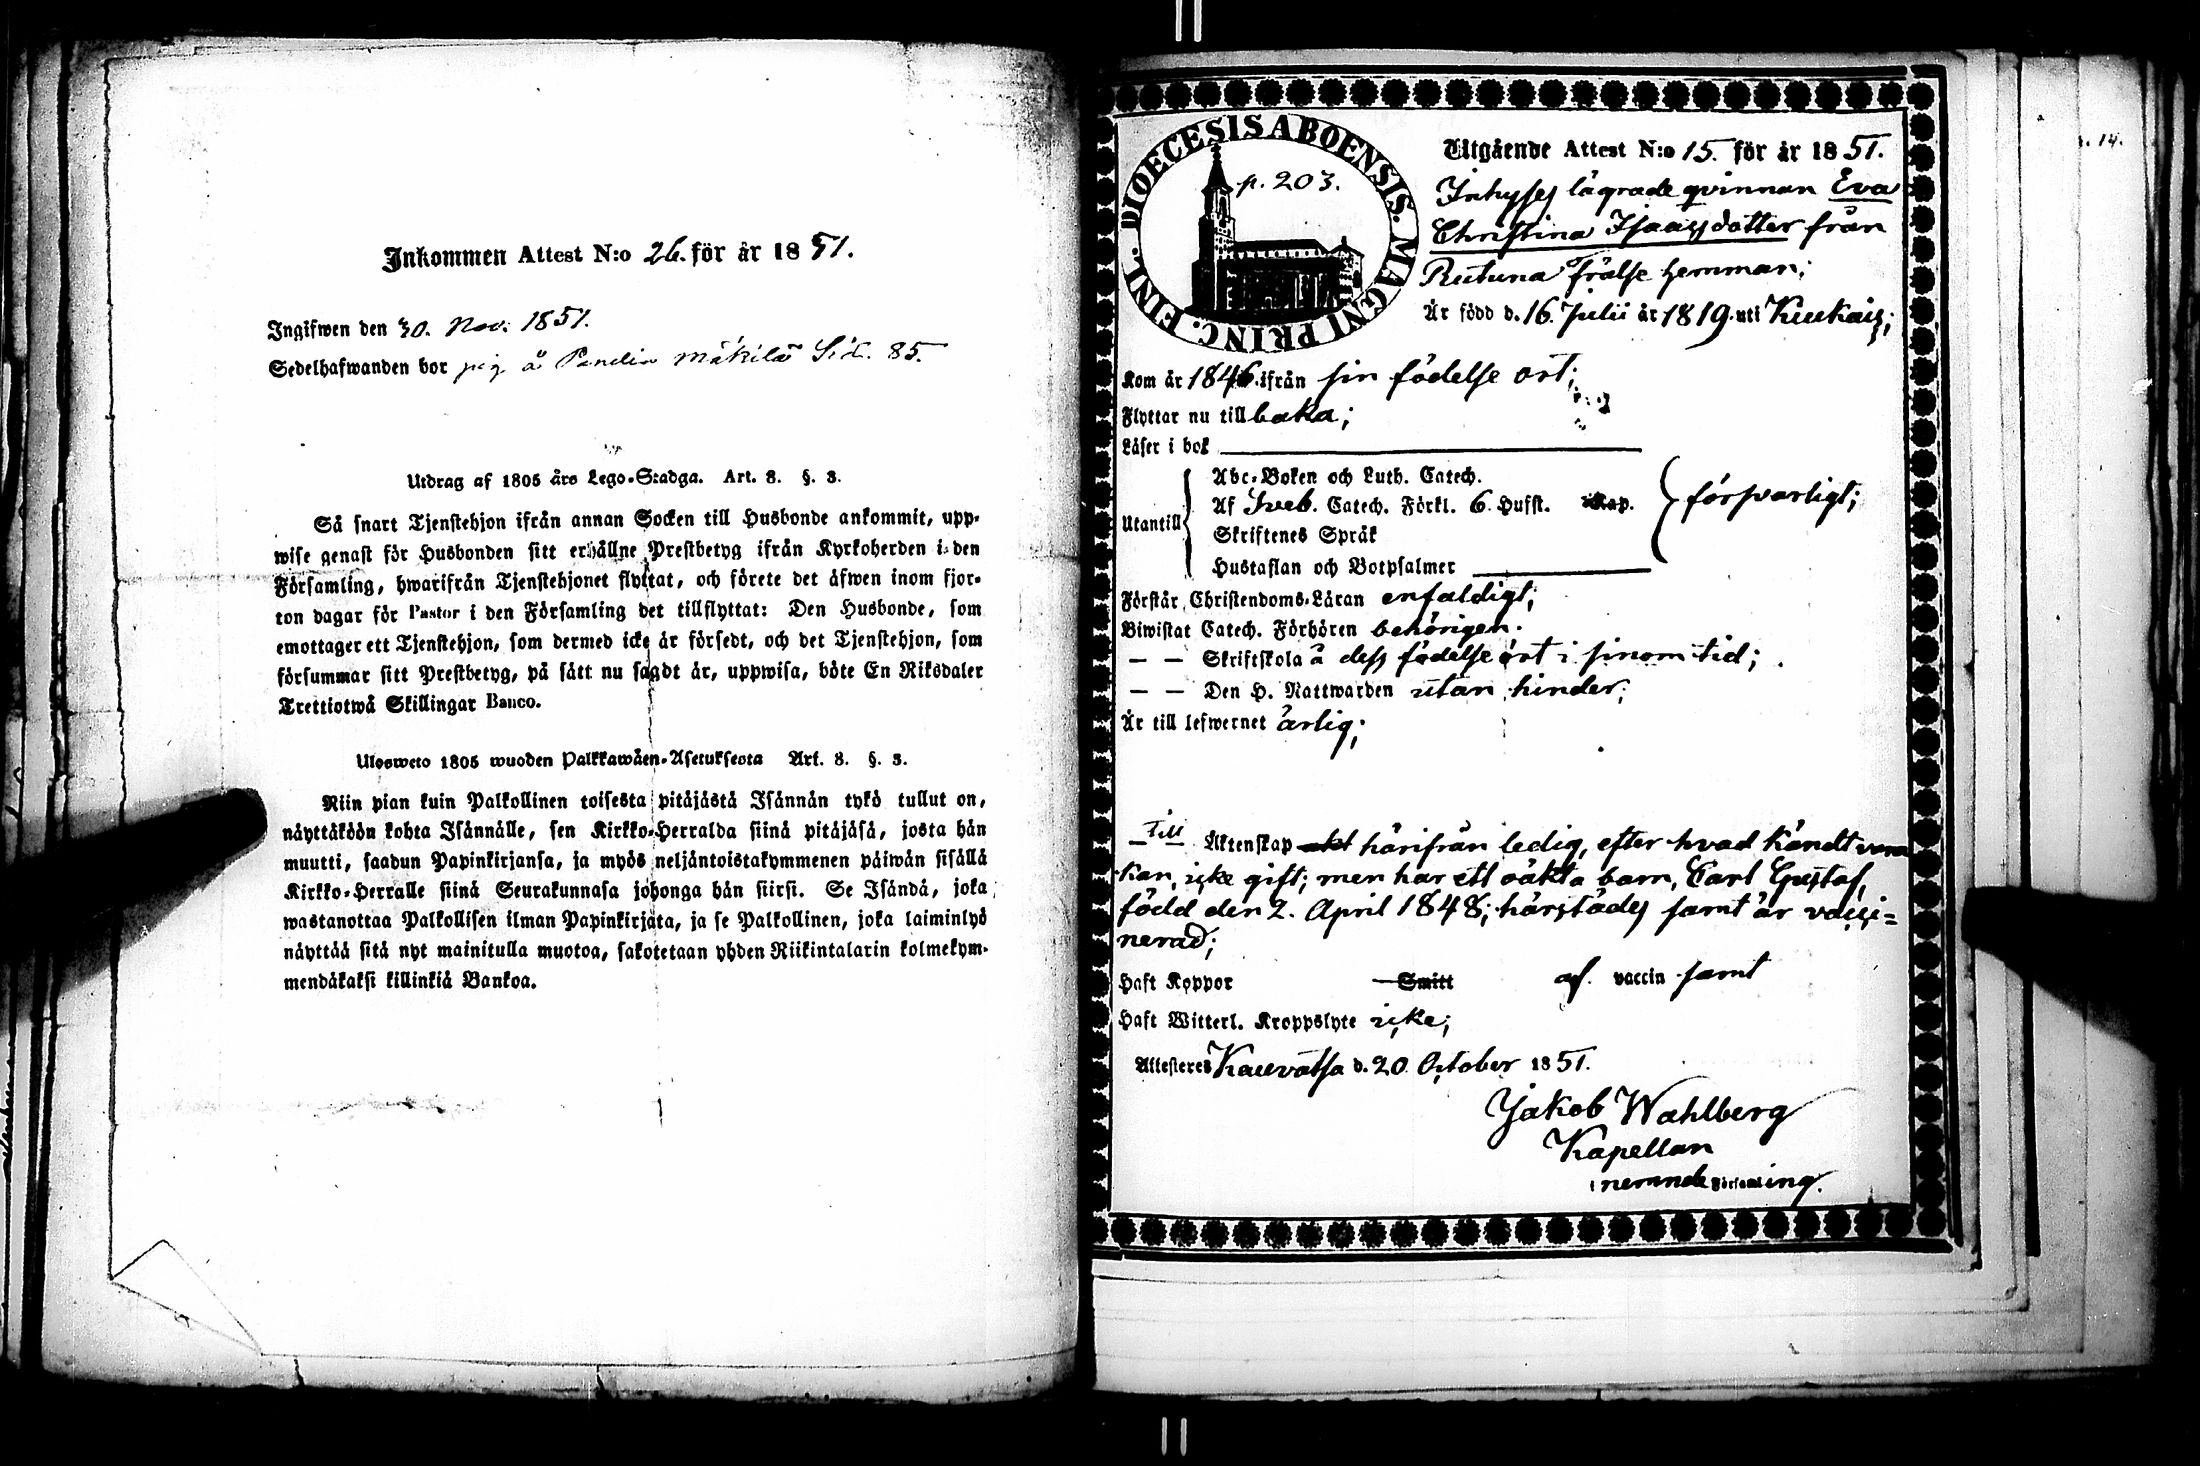 Inkommen Attest N:o 26. för år 1851.
Ingifwen den 30. Nov. 1851.
Sedelhafwanden bor pig å Mäkilä Sid. 85.
Utdrag af 1805 års Lego-Stadga. Art. 8. §. 3.
Så snart Tjenstehjon ifrån annan Socken till Husbonde ankommit, upp-
wise genast för Husbonden sitt erhållne Prestbetyg ifrån Kyrkoherden i den
Församling, hwarifrån Tjenstehjonet flyttat, och förete det äfwen inom fjor-
ton dagar för Pastor i den Församling det tillflyttat: Den Husbonde, som
emottager ett Tjenstehjon, som dermed icke är försedt, och det Tjenstehjon, som
försummar sitt Prestbetyg, på sätt nu sagdt är, uppwisa, böte En Riksdaler
Trettiotwå Skillingar Banco.
Ulosweto 1805 wuoden Palkkawäen-Asetuksesta Art. 8. §. 3.
Niin pian kuin Palkollinen toisesta pitäjästä Isännän tykö tullut on,
näyttäköön kohta Isännälle, sen Kirkko-Herralda siinä pitäjäsä, josta hän
muutti, saadun Papinkirjansa, ja myös neljäntoistakymmenen päiwän sisällä
Kirkko-Herralle siinä Seurakunnasa johonga hän siirsi. Se Isändä, joka
wastanottaa Palkollisen ilman Papinkirjata, ja se Palkollinen, joka laiminlyö
näyttää sitä nyt mainitulla muotoa, sakotetaan yhden Riikintalarin kolmekym-
mendäkaksi killinkiä Bankoa.
DIOECESIS ABOENSIS. MAGNI PRINC. FINL.
p. 203.
Utgående Attest N:o 15. för år 1851.
Inhyses lägrade qvinnan Eva
Christina Isaaksdotter från
Ruituna Frälse hemman;
Är född d. 16. Julii år 1819. uti Kiukais;
Kom år 1846. ifrån sin födelse ort;
Flyttar nu tillbaka;
Läser i bok
Utantill
Abc-Boken och Luth. Catech.
Af Sveb. Catech. Förkl. 6. Hufst. Kap.
försvarligt;
Skriftenes Språk
Hustaflan och Botpsalmer
Förstår Christendoms-Läran enfaldigt;
Biwistat Catech. Förhören behörigen.
— — Skriftskola å dess födelse ort i sinom tid;
— — Den H. Nattwarden utan hinder;
Är till lefwernet ärlig;
till
— — Äktenskap härifrån ledig, efter hvad kändt vara
kan, icke gift; men har ett oäkta barn, Carl Gustaf,
född den 2. April 1848; härstädes samt är vacci-
nerad;
Haft Koppor Smitt af vaccin samt
Haft Witterl. Kroppslyte icke;
Attesteres Kauvatsa d. 20. October 1851.
Jakob Wahlberg
Kapellan
i nemnde Församling.
p. 14.